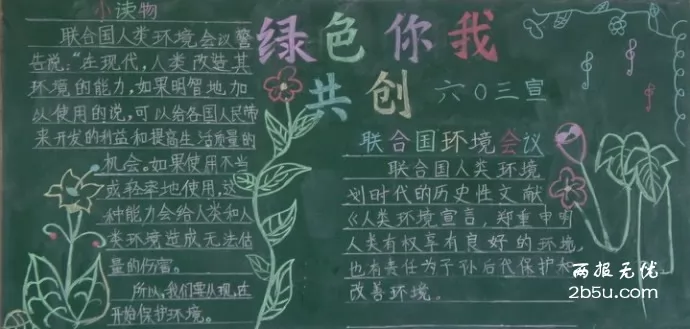 小读物
联合国人类环境会议警
告说:“在现代,人类改造其
环境的能力,如果明智地加
以使用的说,可以给各国人民带
来开发的利益和提高生活质量的
机会。如果使用不当
或轻率地使用,这
种能力会给人类和人
类环境造成无法估
量的伤害。
所以,我们要从现在
开始保护环境。
绿色你我
共创
六〇三宣
联合国环境会议
联合国人类环境
划时代的历史性文献
《人类环境宣言,郑重申明
人类有权享有良好的环境,
也有责任为子孙后代保护和
改善环境。
两报无优
2b5u.com